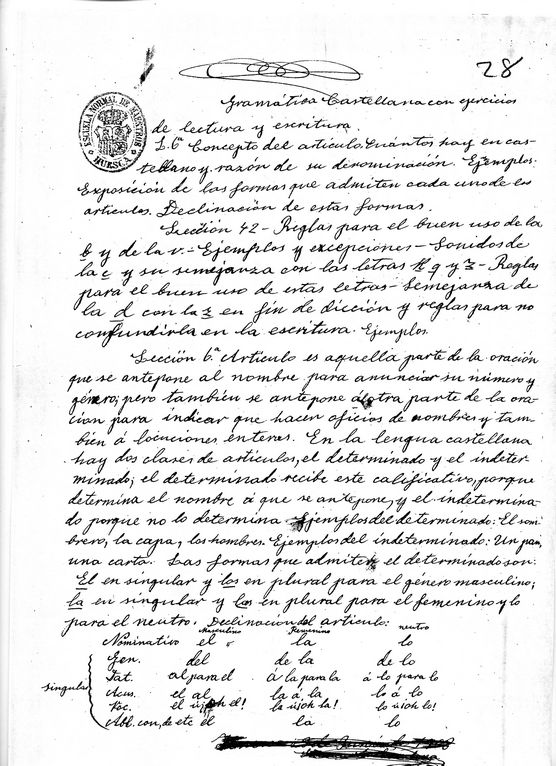 28
Gramática Castellana con ejercicios
de lectura y escritura
ESCUELA NORMAL DE MAESTROS
HUESCA
L. 6ª Concepto del artículo. Cuántos hay en cas-
tellano y razón de su denominación. Ejemplos.
Exposición de las formas que admiten cada uno de es
artículos. Declinación de estas formas.
Lección 42 - Reglas para el buen uso de la
b y de la v. - Ejemplos y excepciones - Sonidos de
la c y su semejanza con las letras k q y z - Reglas
para el buen uso de estas letras - Semejanza de
la d con la z en fin de dicción y reglas para no
confundirla en la escritura. Ejemplos.
Lección 6ª Artículo es aquella parte de la oración
que se antepone al nombre para anunciar su número y
género; pero tambien se antepone á otra parte de la ora-
cion para indicar que hacen oficios de nombres y tam-
bién á locuciones enteras. En la lengua castellana
hay dos clases de artículos, el determinado y el indeter-
minado; el determinado recibe este calificativo, porque
determina el nombre á que se antepone, y el indetermina-
do porque no lo determina Ejemplos del determinado: El som-
brero, la capa, los hombres. Ejemplos del indeterminado: Un pan,
una carta. Las formas que admite el determinado son:
El en singular y los en plural para el género masculino;
la en singular y las en plural para el femenino y lo
para el neutro. Declinacion del artículo:
Masculino Femenino neutro
Nominativo el la lo
Gen. del de la de lo
Dat. al para el á la para la á lo para lo
singular Acus. el al la á la lo á lo
Voc. el ú ¡oh el! la ú ¡oh la! lo ú ¡oh lo!
Abl. con, de etc el la lo